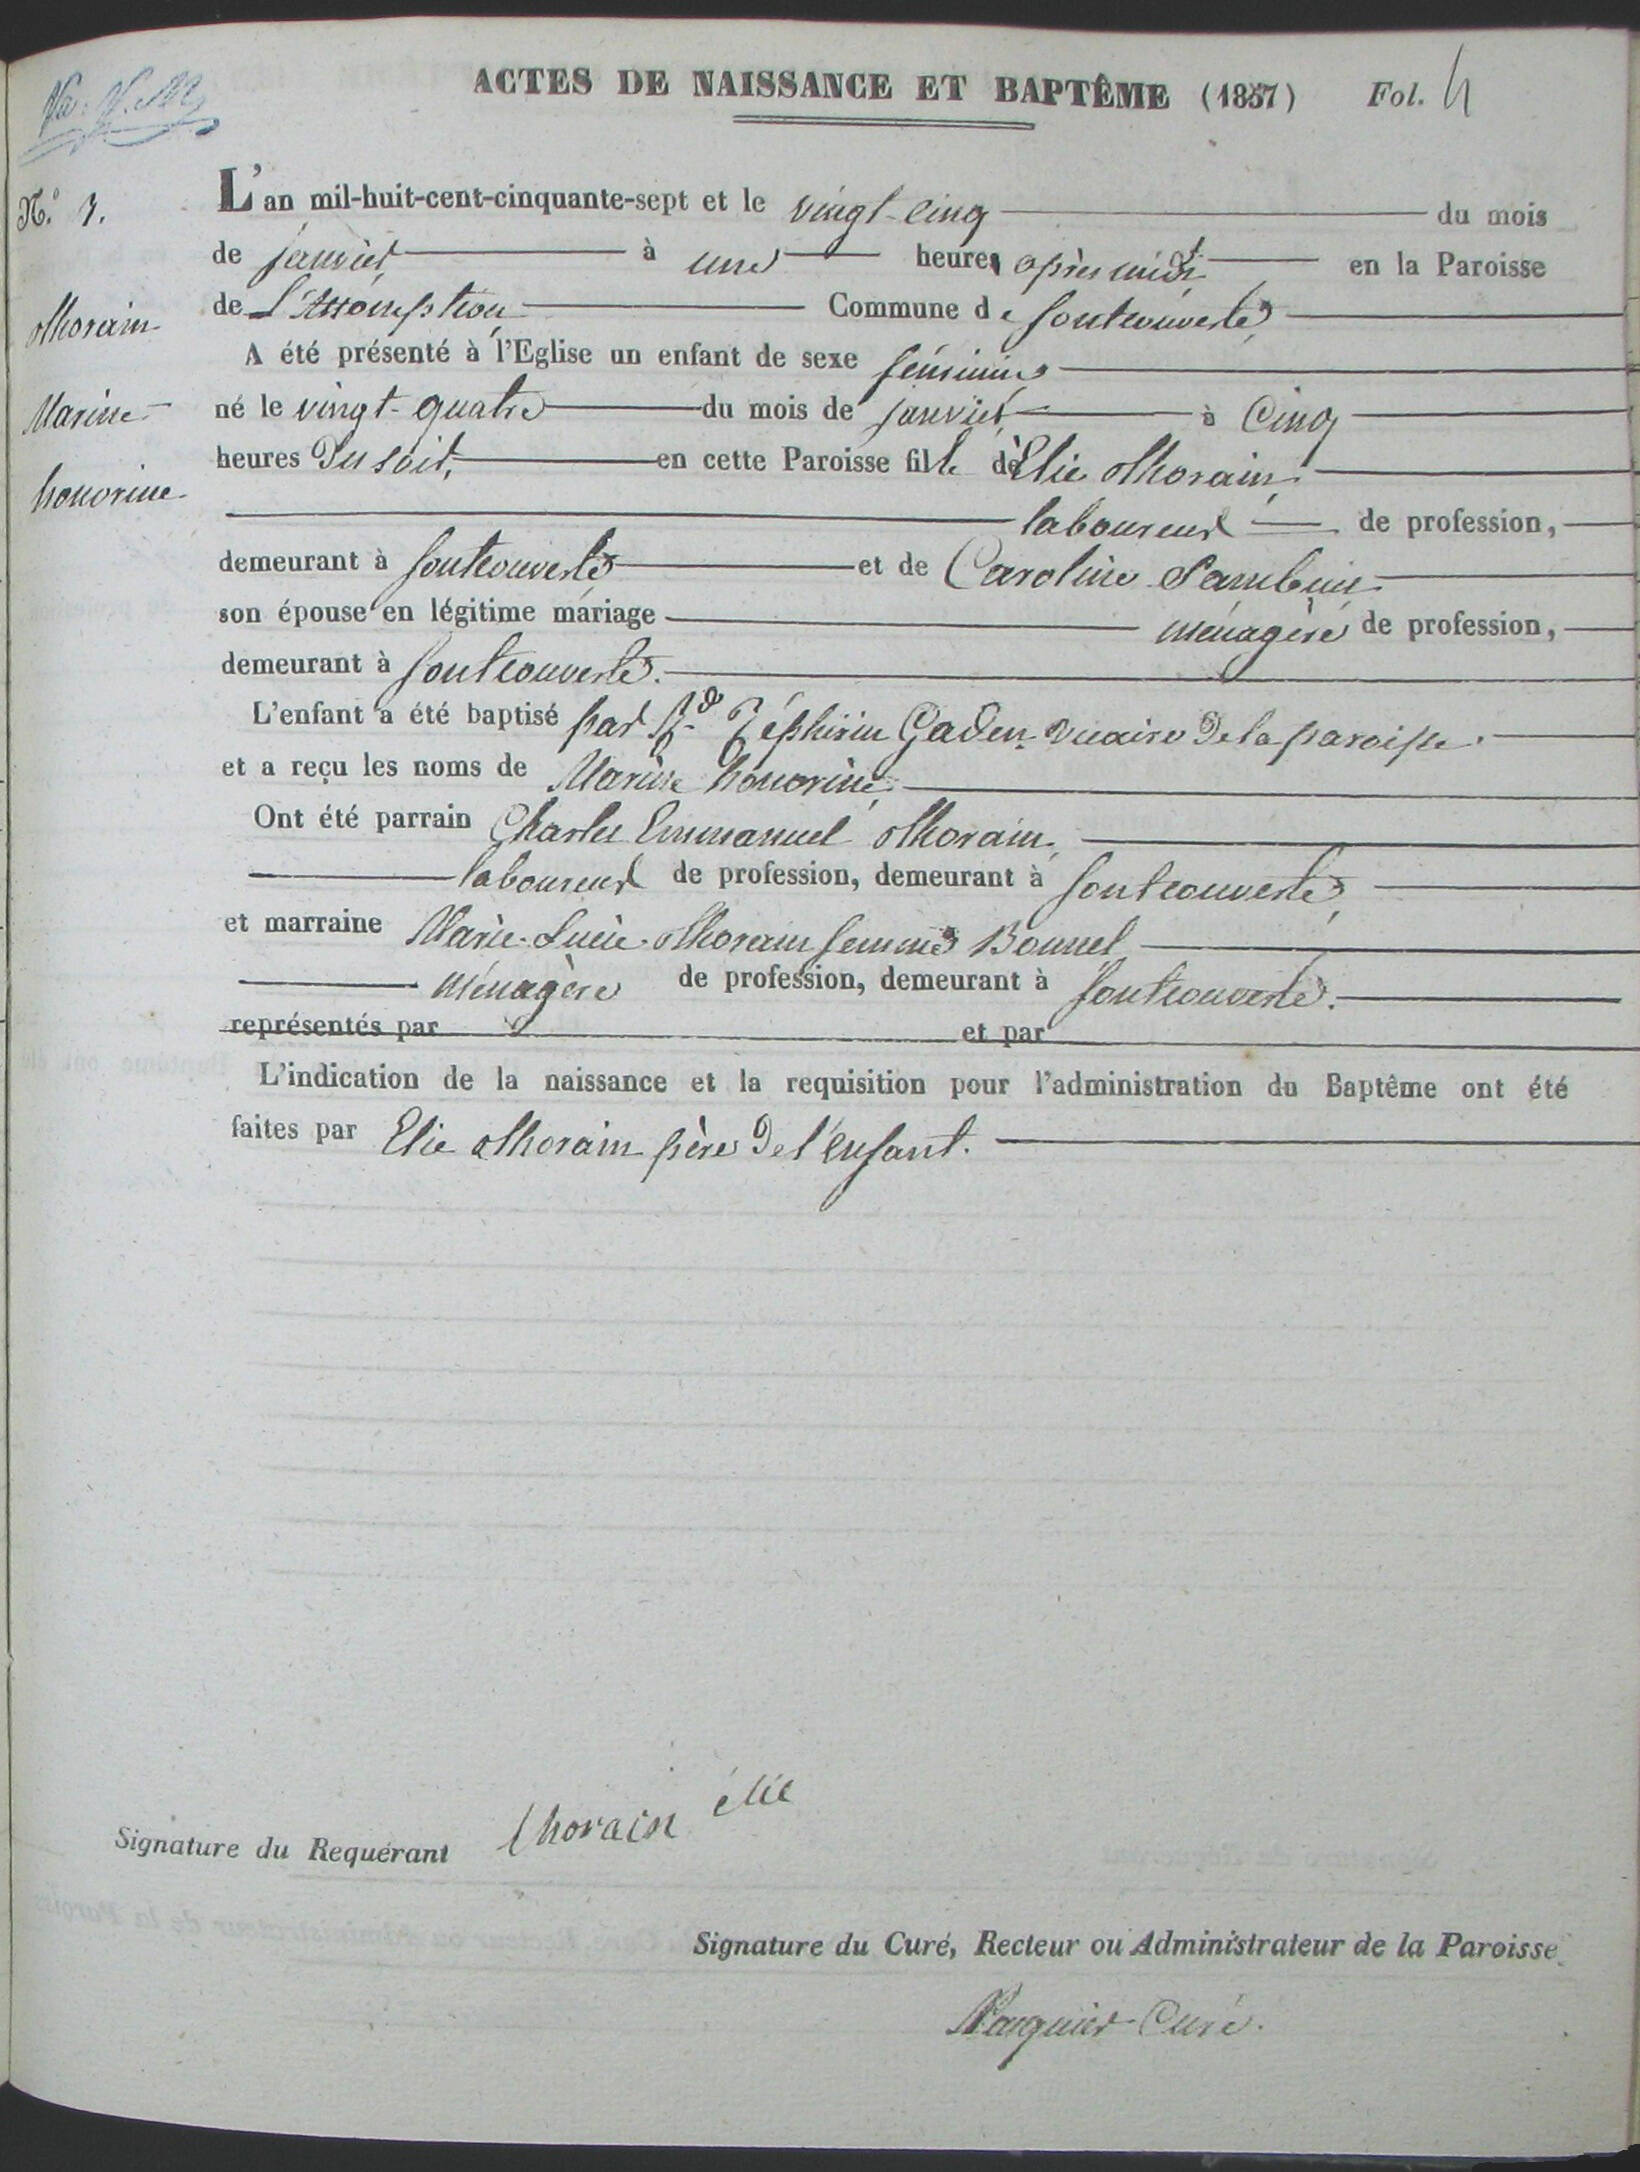 ACTES DE NAISSANCE ET BAPTÊME (1857) Fol. 4
N.º 7.
L'an mil-huit-cent-cinquante-sept et le vingt-cinq du mois
de janvier à une heure après midi en la Paroisse
de L'Assomption Commune de fontcouverte,
Thorain
Marine
honorine
A été présenté à l'Eglise un enfant de sexe féminin
né le vingt-quatre du mois de janvier à Cinq
heures Du soir, en cette Paroisse fille de Elie Thorain,
laboureur de profession,
demeurant à fontcouverte et de Caroline Sambuis
son épouse en légitime mariage ménagère de profession,
demeurant à fontcouverte.
L'enfant a été baptisé par Rd Zéphirin Gaden vicaire De la paroisse.
et a reçu les noms de Marine honorine
Ont été parrain Charles Emmanuel Thorain,
laboureur de profession, demeurant à fontcouverte,
et marraine Marie-Lucie Thorain femme Bonnel
ménagère de profession, demeurant à fontcouverte.
représentés par et par
L'indication de la naissance et la requisition pour l'administration du Baptême ont été
faites par Elie Thorain père De l'enfant.
Signature du Requérant thorain élie
Signature du Curé, Recteur ou Administrateur de la Paroisse
Curé.